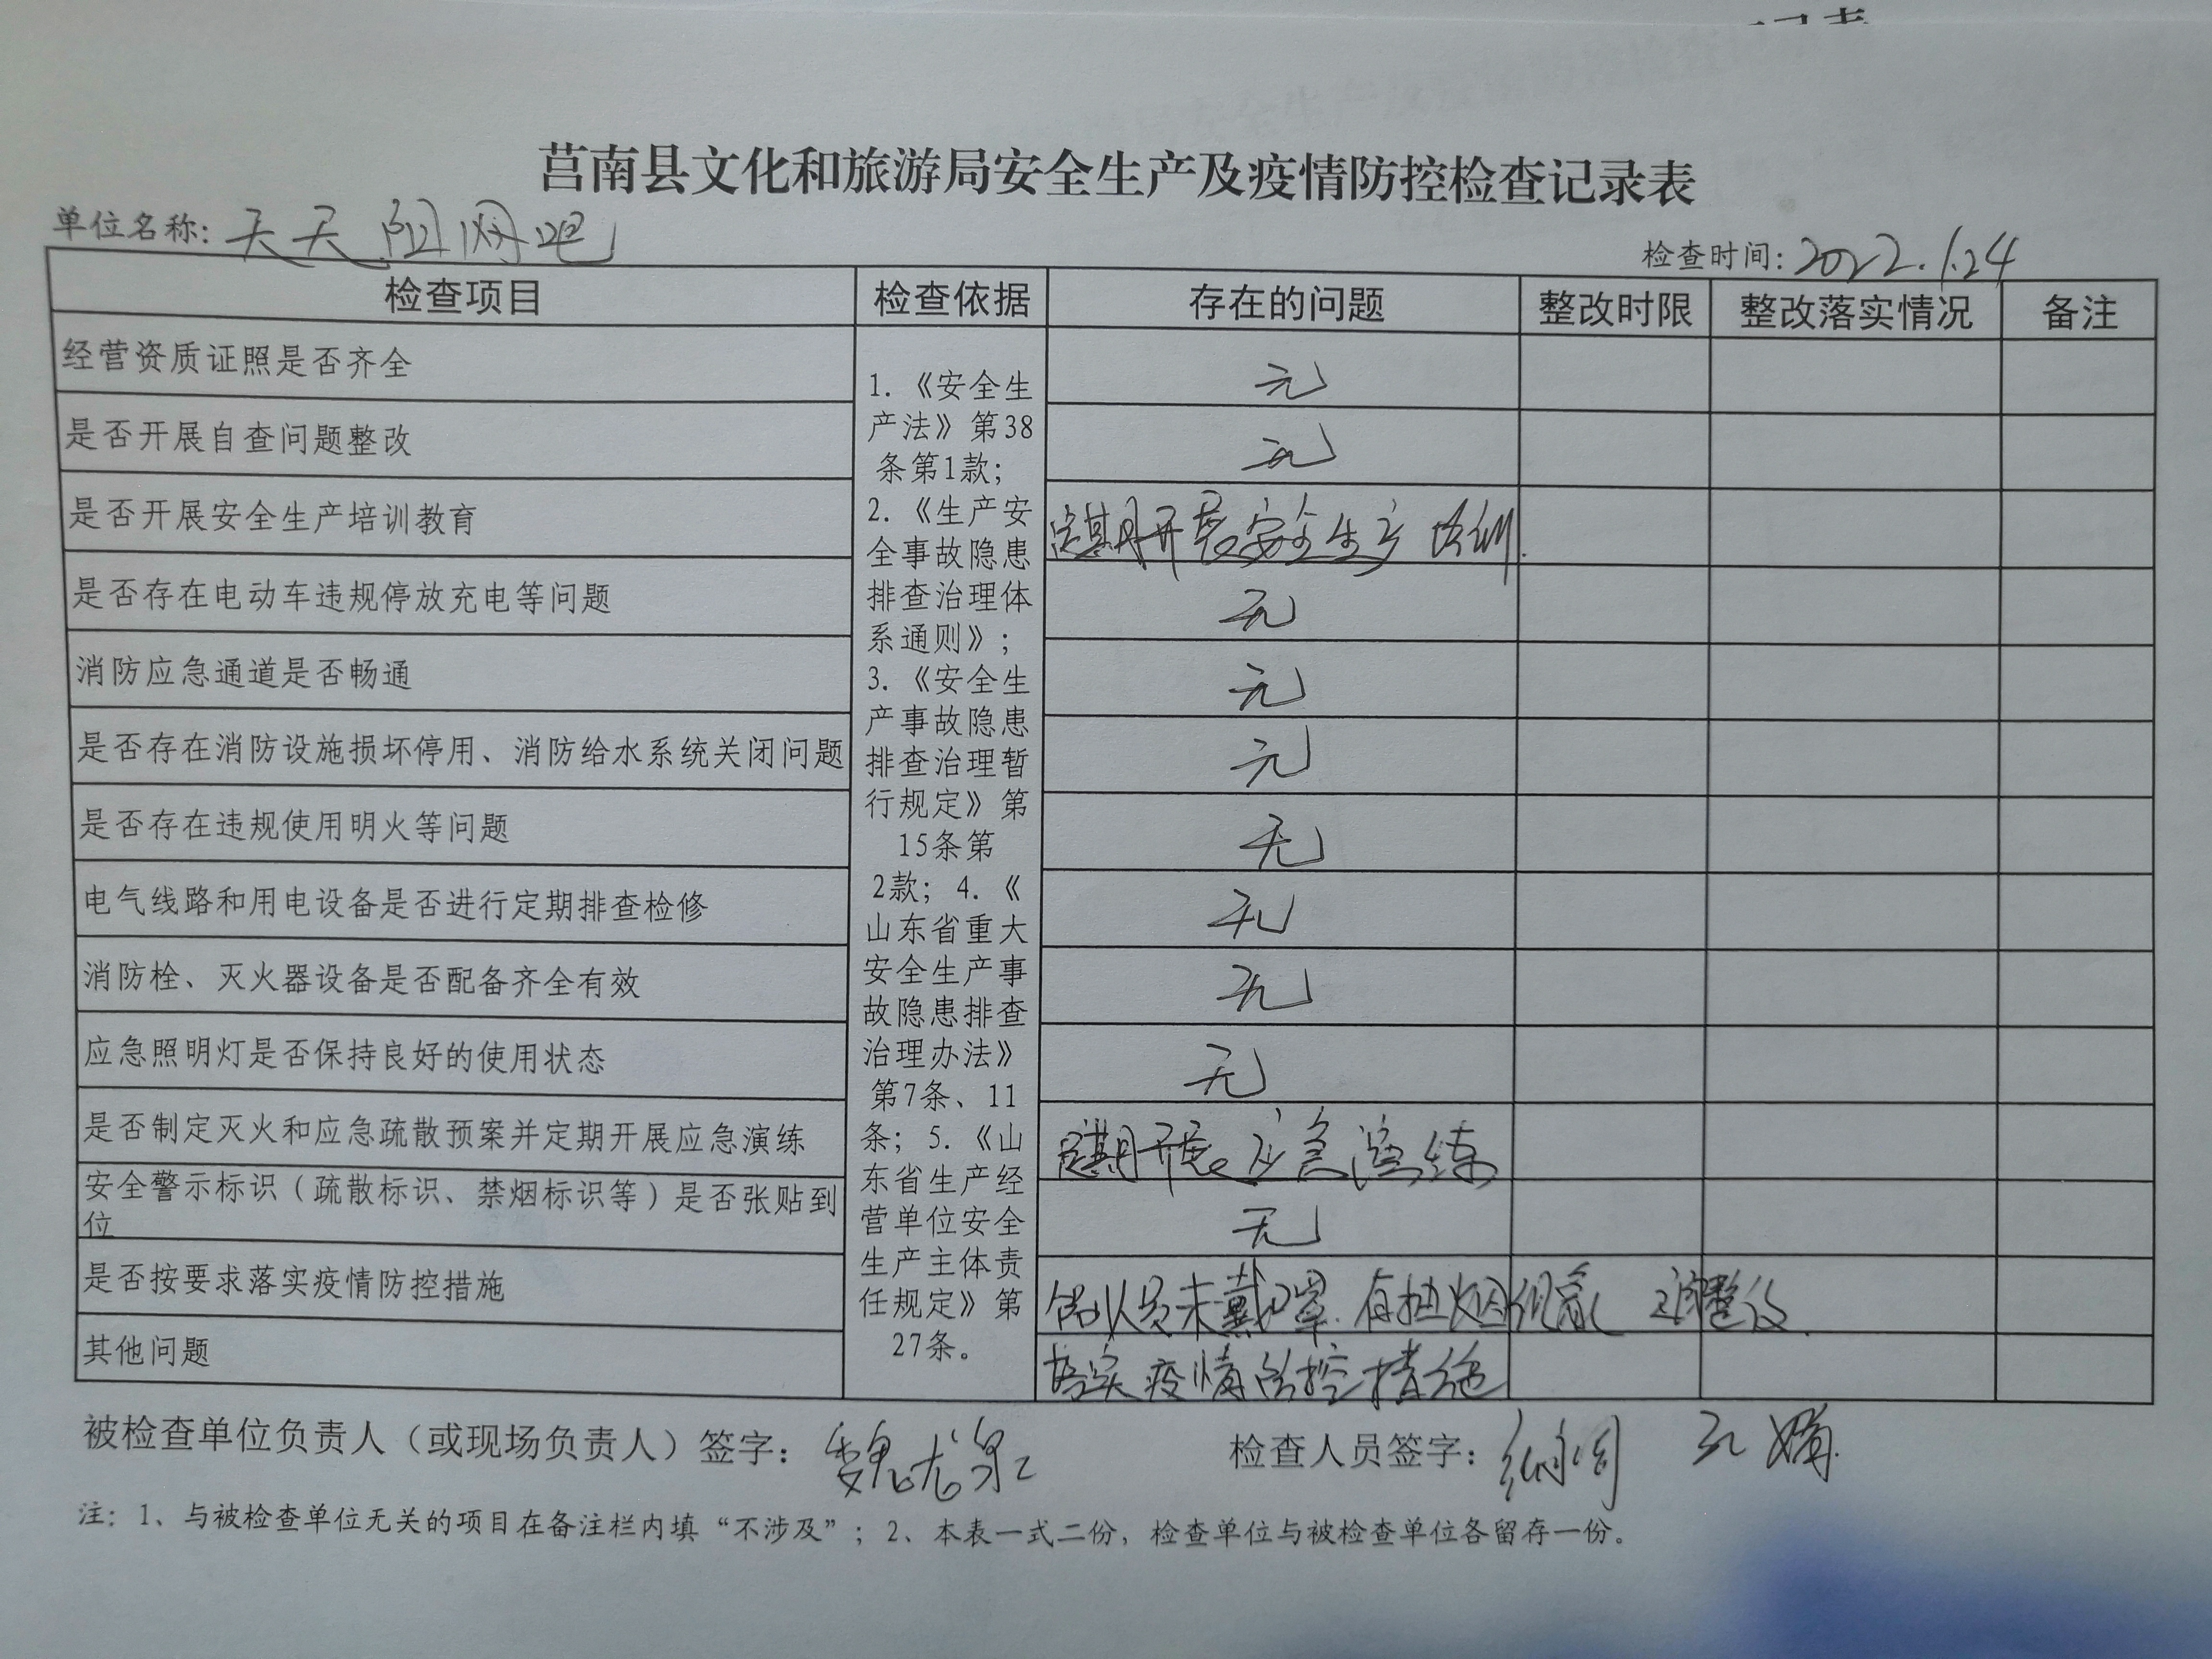 莒南县文化和旅游局安全生产及疫情防控检查记录表
单位名称：天天网吧
检查时间：2022.1.24
检查项目 检查依据 存在的问题 整改时限 整改落实情况 备注
1.《安全生
产法》第38
条第1款；
2.《生产安
全事故隐患
排查治理体
系通则》；
3.《安全生
产事故隐患
排查治理暂
行规定》第
15条第
2款；4.《
山东省重大
安全生产事
故隐患排查
治理办法》
第7条、11
条；5.《山
东省生产经
营单位安全
生产主体责
任规定》第
27条。
经营资质证照是否齐全 无
是否开展自查问题整改 无
是否开展安全生产培训教育 定期开展安全生产培训.
是否存在电动车违规停放充电等问题 无
消防应急通道是否畅通 无
是否存在消防设施损坏停用、消防给水系统关闭问题 无
是否存在违规使用明火等问题 无
电气线路和用电设备是否进行定期排查检修 无
消防栓、灭火器设备是否配备齐全有效 无
应急照明灯是否保持良好的使用状态 无
是否制定灭火和应急疏散预案并定期开展应急演练 定期开展应急演练
安全警示标识（疏散标识、禁烟标识等）是否张贴到
位 无
是否按要求落实疫情防控措施 人员未戴口罩.有抽烟现象 整改.
其他问题 落实疫情防控措施
被检查单位负责人（或现场负责人）签字：魏
检查人员签字：
注：1、与被检查单位无关的项目在备注栏内填“不涉及”；2、本表一式二份，检查单位与被检查单位各留存一份。